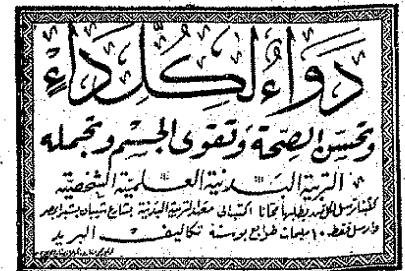 دَوَاءٌ لِكُلِّ دَاءٍ
وتحسن الصحة وتقوى الجسم وتجمله
التربية البدنية العلمية الشخصية
اكتب الى معهد التربية البدنية بشارع شيبان بشبرا مصر
وارسل فقط ١٠ مليمات طوابع بوستة تكاليف البريد